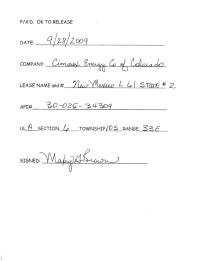 P/A'D. OK TO RELEASE
DATE: 9/28/2009
COMPANY: Cimarex Energy Co of Colorado
LEASE NAME and #: New Mexico L 61 STATE # 2
API# 30-025-34309
UL A SECTION 6 TOWNSHIP 10S RANGE 33E
SIGNED: